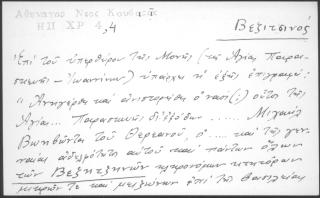 Αθηναγορ Νεος Κουβαρᾶς
ΗΠ ΧΡ 4,4
Βεζιτσινός
Ἐπὶ τοῦ ὑπερθύρου τῆς Μονῆς (τῆς Ἁγίας Παρασ-
κευῆς - Ἰωαννίνων) ὑπάρχει ἡ ἑξῆς ἐπιγραφή:
"Ἀνηγέρθη καὶ ἀνιστορήθη ὁ ναὸς(;) οὗτος τῆς
Ἁγίας... Παρασκευῆς δι' ἐξόδου ........ Μιχαὴλ
Βωηβώντα τοῦ Θερειανοῦ, ὁ .... καὶ τῆς γεν-
ναίας ἀδελφότητος αὐτοῦ καὶ πάντων ὅλων
τῶν Βεζητζηνῶν κληρονόμων κτητόρων
μικρῶν τε καὶ μειζόνων ἐπὶ τῆς βασιλείας